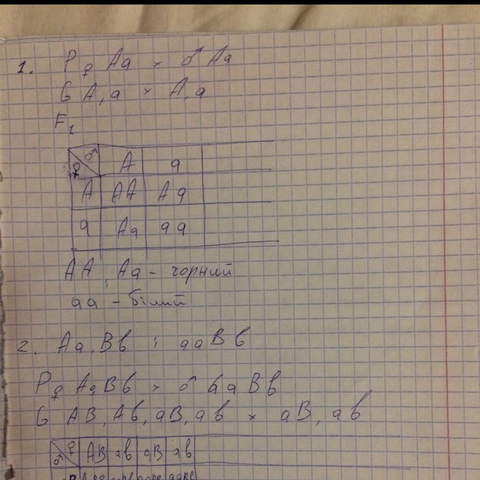 1. P ♀ Aa × ♂ Aa
G A, a × A, a
F1
♀ ♂ A a
A AA Aa
a Aa aa
AA, Aa - чорний
aa - білий
2. Aa Bb ; aaBb
P ♀ AaBb × ♂ aaBb
G AB, Ab, aB, ab × aB, ab
♂ ♀ AB ab aB ab